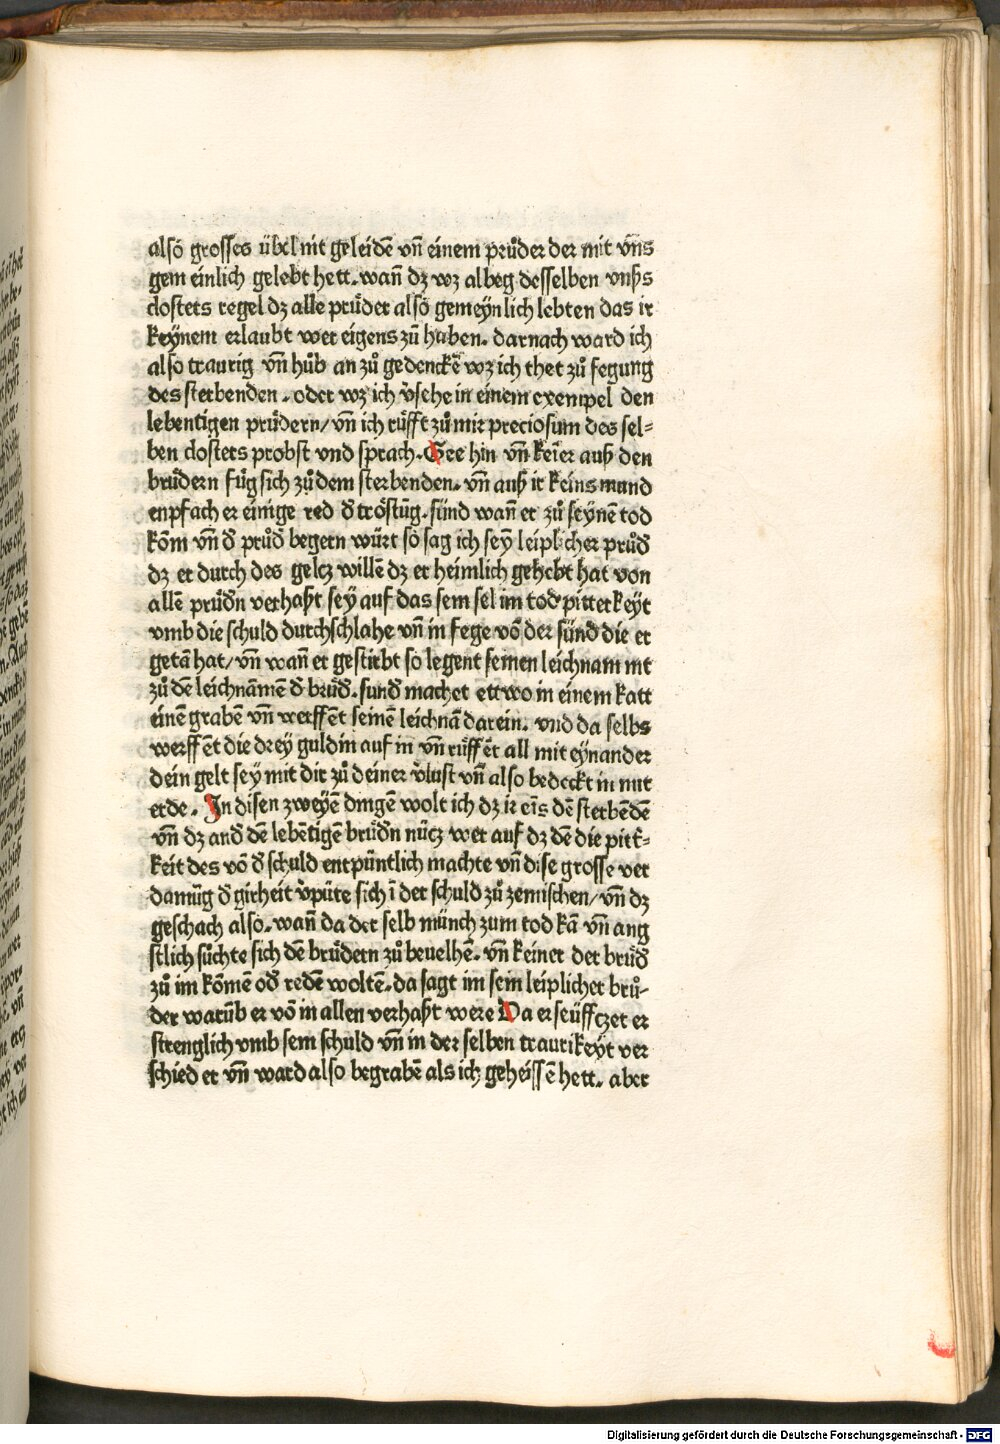 alsō grosses übel nit geleidē vn̄ einem průder der mit vn̄s
gem einlich gelebt hett. wan̄ dz wz albeg desselben vnßs
closters regel dz alle průder alsō gemeynlich lebten das ir
keynem erlaubt wer eigens zů haben. darnach ward ich
also traurig vn̄ hůb an zů gedenckē wz ich thet zů fegung
des sterbenden. oder wz ich v̄sehe in einem exempel den
lebentigen průdern/ vn̄ ich růfft zů mir preciosum des sel=
ben closters probst vnd sprach. Gee hin vn̄ keīer auß den
brůdern fůg sich zů dem sterbenden. vn̄ auß ir keins mund
enpfach er einige red đ tröstūg. sūnd wan̄ er zů seynē tod
kōm vn̄ đ průđ begern würt so sag ich seyn leiplicher průđ
dz er durch des geltz willē dz er heimlich gehebt hat von
allē průđn verhaßt sey auf das sein sel im tod pitterkeyt
vmb die schuld durchschlahe vn̄ in fege vō der sünd die er
getā hat/ vn̄ wan̄ er gestirbt so legent seinen leichnam nit
zů dē leichnāmē đ brůđ. sunđ machet ettwo in einem katt
einē grabē vn̄ werffēt seinē leichnā darein. vnd da selbs
werffēt die drey guldin auf in vn̄ růffēt all mit eynander
dein gelt sey mit dir zů deiner v̄lust vn̄ also bedeckt in mit
erde. In disen zweyē dingē wolt ich dz ir eīs dē sterbēdē
vn̄ dz anđ dē lebētigē brůđn nücz wer auf dz dē die pitt̄=
keit des vō đ schuld entpüntlich machte vn̄ dise grosse ver
damūg đ girheit v̄püte sich ī der schuld zů zemischen/ vn̄ dz
geschach also. wan̄ da der selb münch zum tod kā vn̄ ang
stlich sůchte sich dē brůdern zů beuelhē. vn̄ keiner der brůđ
zů im kōmē ođ redē woltē. da sagt im sein leiplicher brů=
der warūb er vō in allen verhaßt were Da erseüffczet er
strenglich vmb sein schuld vn̄ in der selben traurikeyt ver
schied er vn̄ ward also begrabē als ich geheissē hett. aber
Digitalisierung gefördert durch die Deutsche Forschungsgemeinschaft - DFG